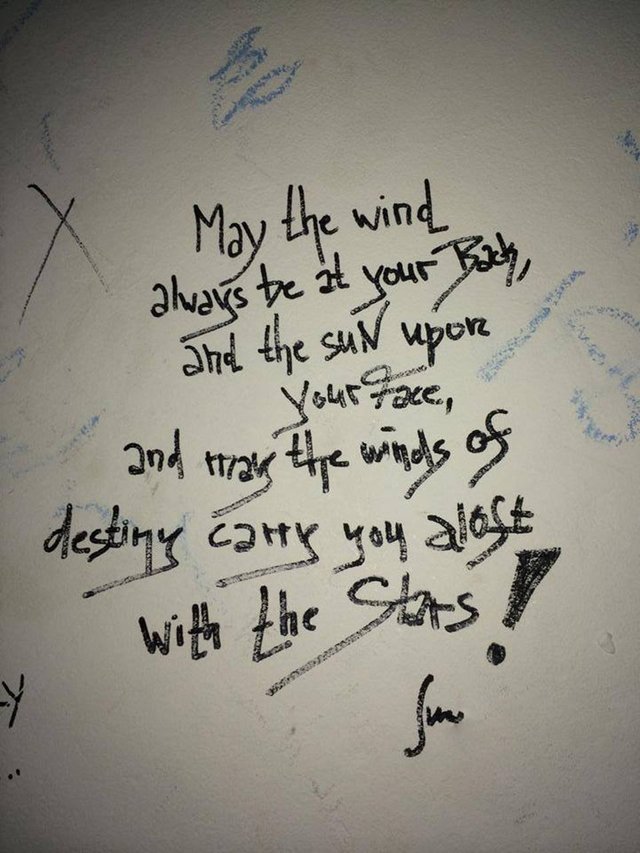 May the wind
always be at your Back,
and the suN upon
your Face,
and may the winds of
destiny carry you aloft
with the Stars!